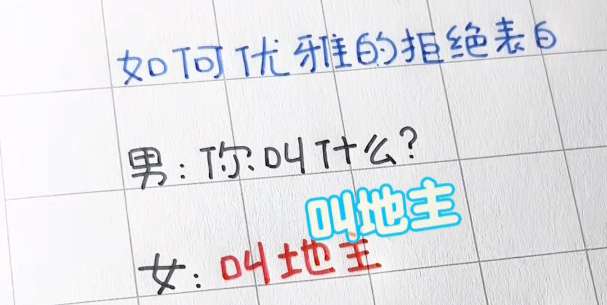 如何优雅的拒绝表白
男：你叫什么？
叫地主
女：叫地主